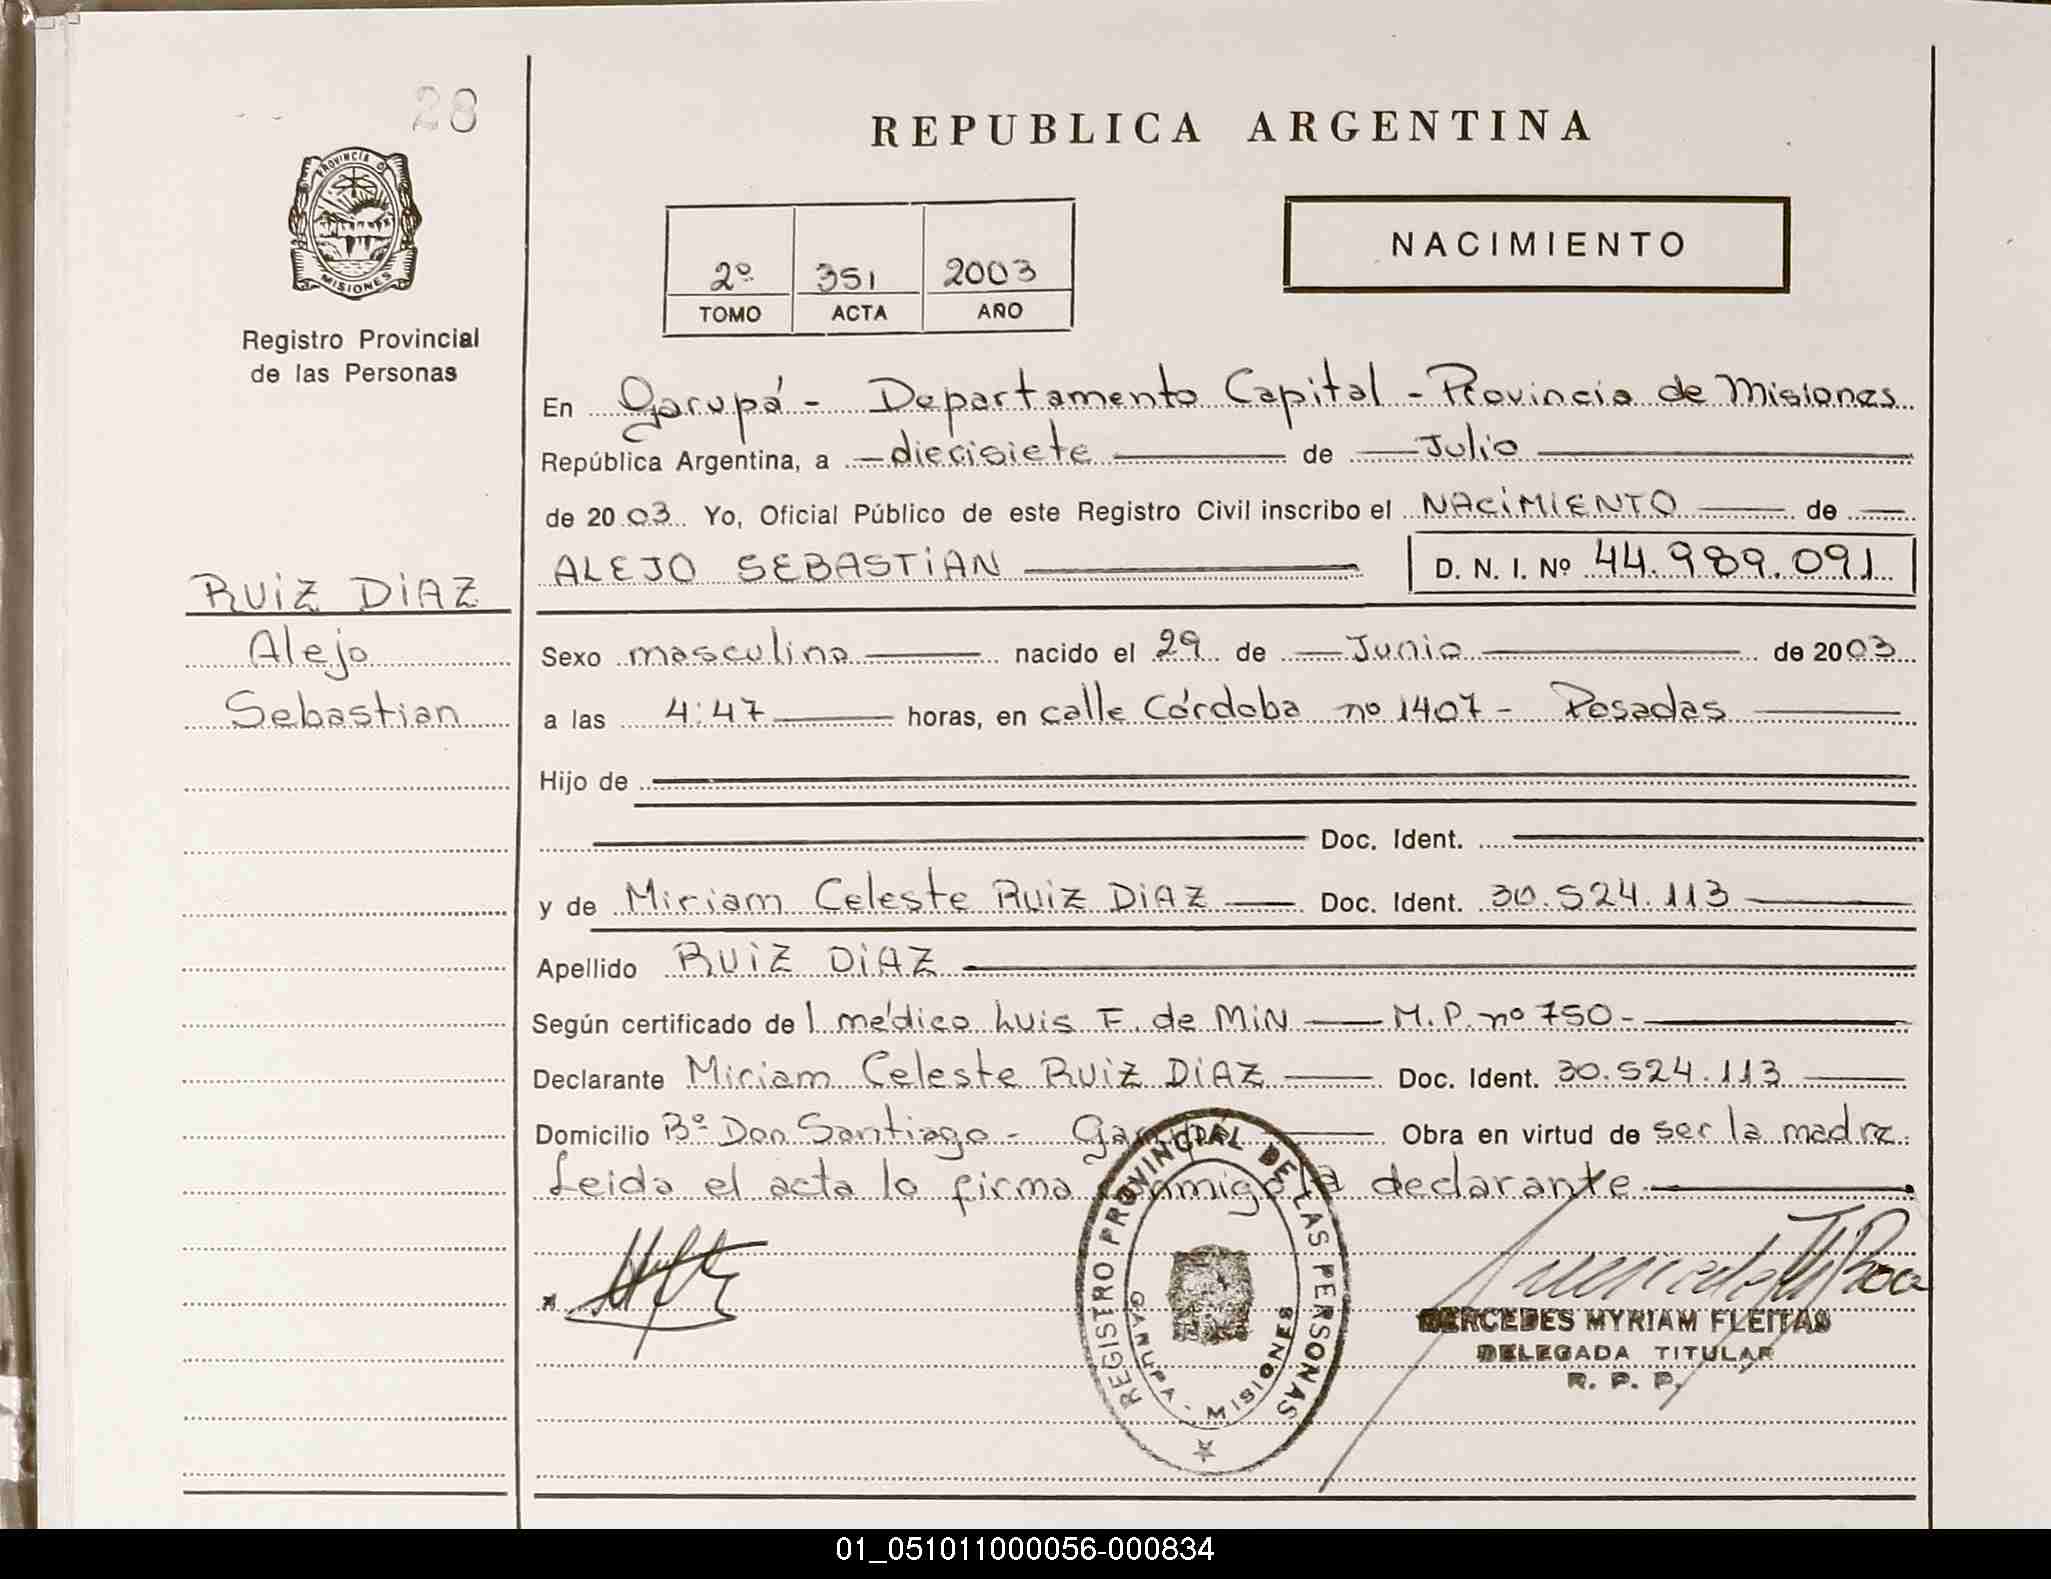 28
REPUBLICA ARGENTINA
PROVINCIA D
MISIONES
Registro Provincial
de las Personas
2º 351 2003
TOMO ACTA AÑO
NACIMIENTO
En Garupá - Departamento Capital - Provincia de Misiones
República Argentina, a diecisiete de Julio
de 2003 Yo, Oficial Público de este Registro Civil inscribo el NACIMIENTO de
ALEJO SEBASTIAN D. N. I. Nº 44.989.091
RUIZ DIAZ
Alejo
Sebastian
Sexo masculino nacido el 29 de Junio de 2003
a las 4:47 horas, en calle Córdoba nº 1407 - Posadas
Hijo de
Doc. Ident.
y de Miriam Celeste RUIZ DIAZ Doc. Ident. 30.524.113
Apellido RUIZ DIAZ
Según certificado del médico Luis F. de MIN M.P. nº 750-
Declarante Miriam Celeste RUIZ DIAZ Doc. Ident. 30.524.113
Domicilio Bº Don Santiago - Garupá Obra en virtud de ser la madre.
Leida el acta lo firma conmigo la declarante
REGISTRO PROVINCIAL DE LAS PERSONAS
GARUPA - MISIONES
MERCEDES MYRIAM FLEITAS
DELEGADA TITULAR
R. P. P.
01_051011000056-000834